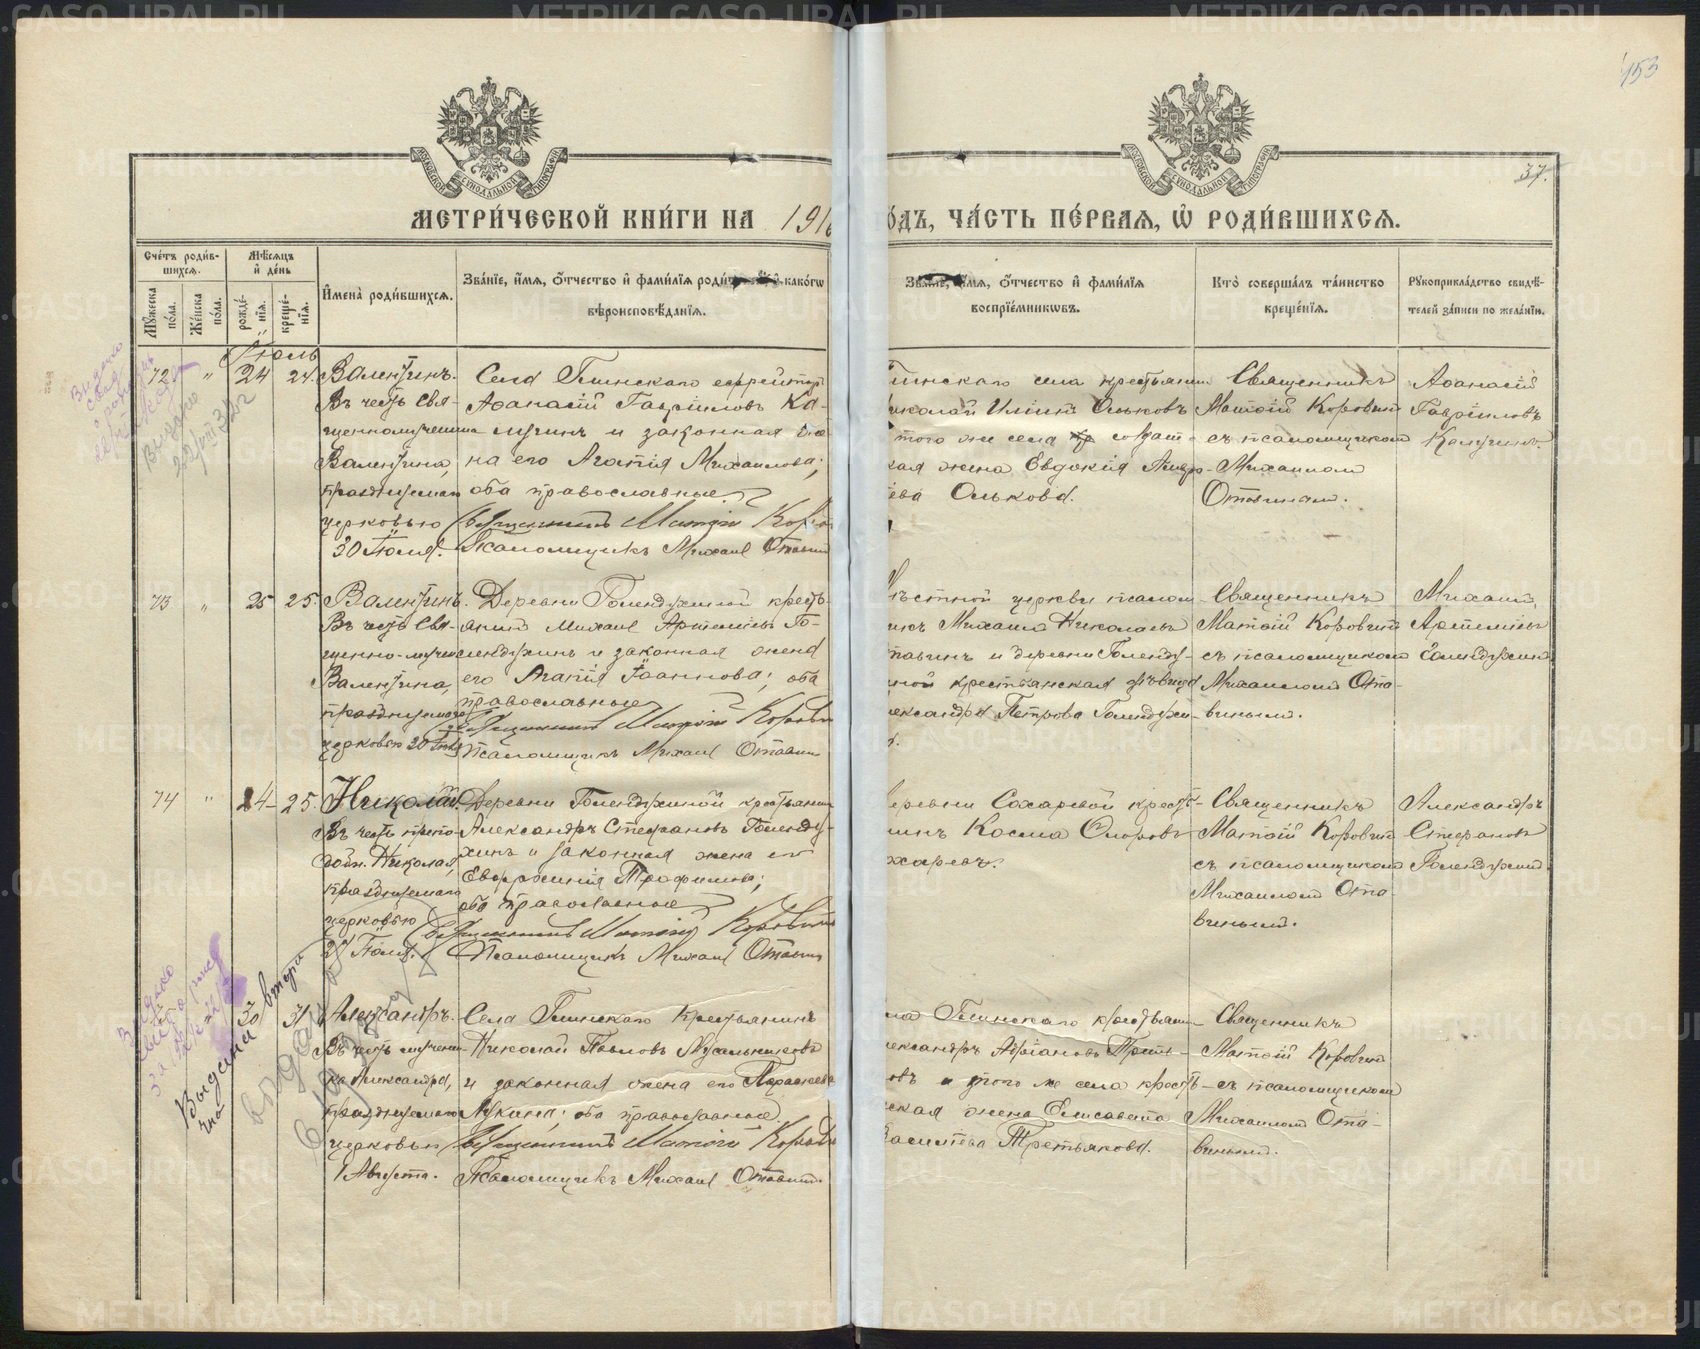 153
37.
МЕТРИ́ЧЕСКОЙ КНИ́ГИ НА 191
ОДЪ, ЧА́СТЬ ПЕ́РВАЯ, Ѡ҆ РОДИ́ВШИХСЯ.
Сче́тъ роди́в-
шихся.
Мꙋ́жеска по́ла.
Же́нска по́ла.
Мѣ́сяцъ и҆ де́нь
рожде́-
нїя.
креще́-
нїя.
И҆мена̀ роди́вшихся.
Зва́нїе, и҆́мя, ѻ҆́тчество и҆ фами́лїя како́гѡ
вѣроисповѣ́данїя.
и҆́мя, ѻ҆́тчество и҆ фами́лїя
воспрїе́мникѡвъ.
Кто̀ соверша́лъ та́инство
креще́нїя.
Рꙋкоприкла́дство свидѣ́-
телей за́писи по жела́нїю.
Іюль
72 " 24 24.
Валентинъ.
Въ честь Свя-
щенномученика
Валентина,
празднуемаго
церковью
30 Іюля.
Села Глинскаго ефрейтор
Аѳанасій Гавріиловъ Ка-
лугинъ и законная же-
на его Агапія Михаилова;
оба православные.
Священникъ Матѳій Коров
Псаломщикъ Михаил Отавин
Глинскаго села крестьянин
иколай Ильинъ Ольковъ
того же села солдат-
кая жена Евдокія Андр
ева Олькова.
Священникъ
Матѳій Коровинъ
съ псаломщикомъ
Михаиломъ
Отавинымъ.
Аѳанасій
Гавріиловъ
Калугинъ
73 " 25 25.
Валентинъ.
Въ честь Свя-
щенно-муче
Валентина,
празднуемаго
церковью 30 Іюля
Деревни Голендухиной кресть-
янинъ Михаил Артемьевъ Го-
лендухинъ и законная жена
его Агапія Іоаннова; оба
православные
Священникъ Матѳій Корови
Псаломщикъ Михаил Отавин
ѣстной церкви псалом
икъ Михаилъ Николаевъ
тавинъ и деревни Голенду-
ной крестьянская дѣвица
лександра Петрова Голендухи-
Священникъ
Матѳій Коровинъ
съ псаломщикомъ
Михаиломъ Ота-
винымъ.
Михаилъ
Артемьевъ
Голендухинъ
74 " 24 25.
Николай.
Въ честь препо-
добн. Николая,
празднуемаго
церковью
27 Іюля.
Деревни Голендухиной крестьянин
Александръ Стефановъ Голенду-
хинъ и законная жена его
Евфросинія Трофимова;
оба православные
Священникъ Матѳій Коровинъ
Псаломщикъ Михаил Отавин
еревни Сохаревой кресть-
нинъ Косма
охаревъ.
Священникъ
Матѳій Коровинъ
съ псаломщикомъ
Михаиломъ Ота-
винымъ.
Александръ
Стефановъ
Голендухинъ
30 31
Александръ.
Въ честь мучени-
ка Александра,
празднуемаго
церковью
1 Августа.
Села Глинскаго Крестьянинъ
Николай Павловъ Мусальниковъ
и законная жена его Параскева
Лукина; оба православные.
Священникъ Матѳій Корови
Псаломщикъ Михаил Отавин.
ла Глинскаго крестьянин
лександръ Третья-
овъ и того же села кресть-
нская жена Елисавета
Васильева Третьякова.
Священникъ
Матѳій Коровинъ
съ псаломщикомъ
Михаиломъ Ота-
винымъ.
METRIKI.GASO-URAL.RU